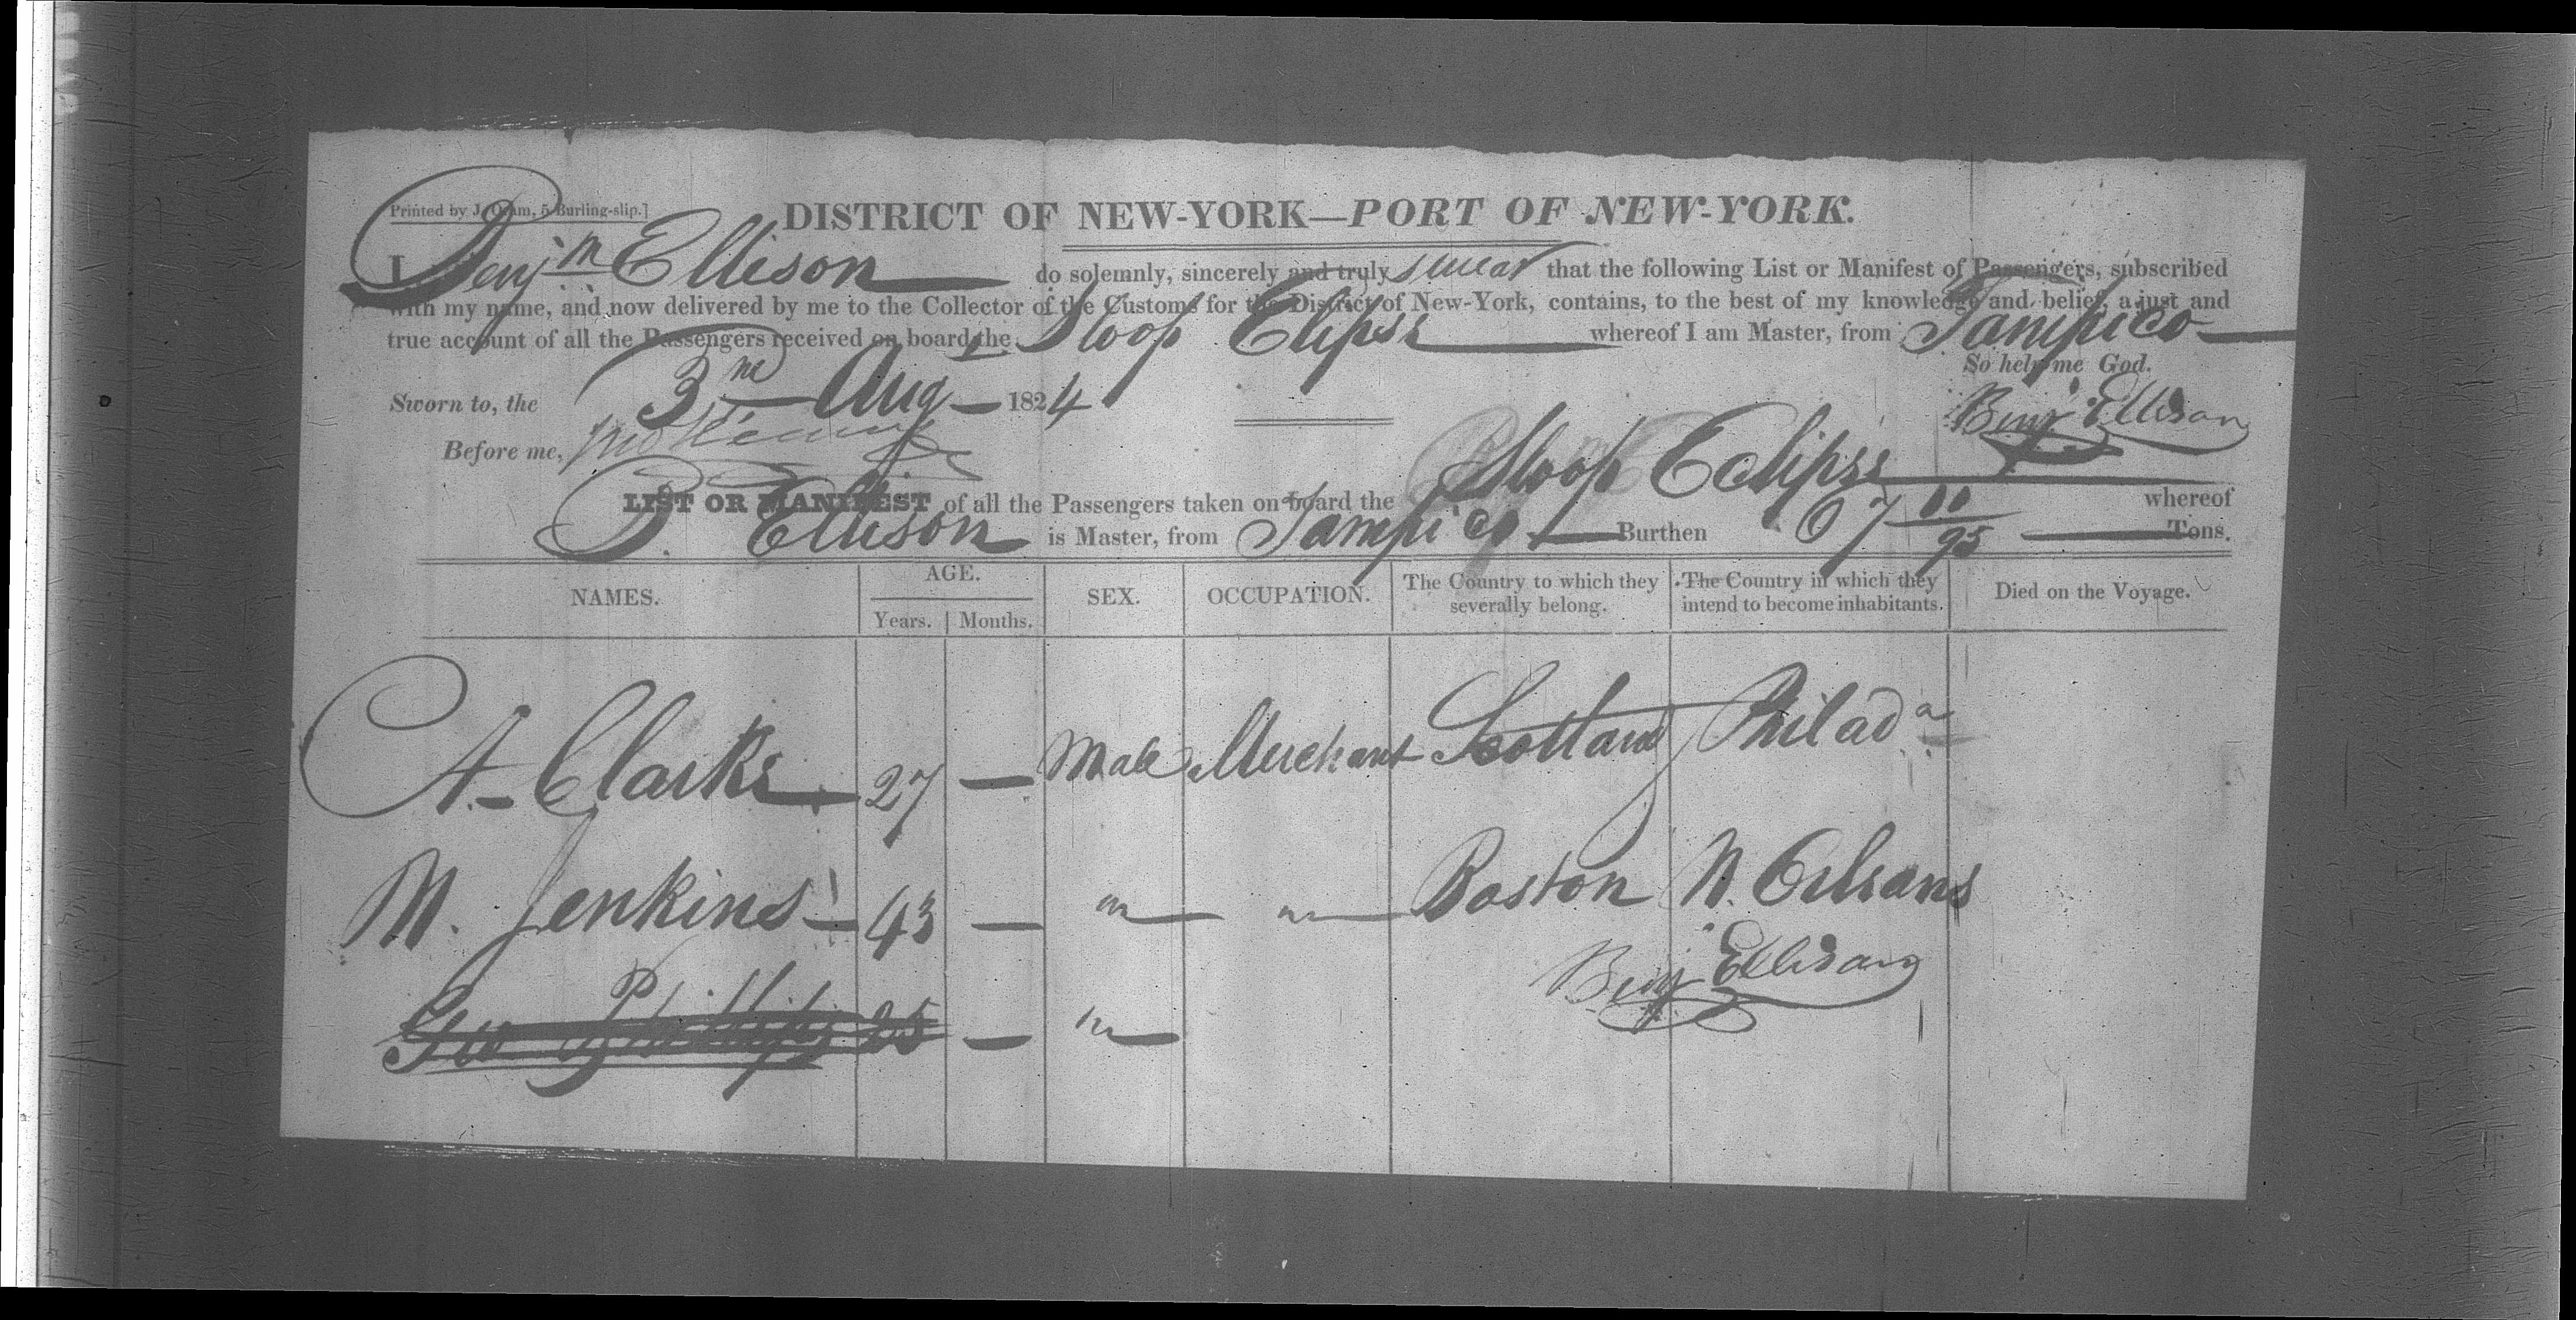 Printed by J. Oram, 5 Burling-slip.]
DISTRICT OF NEW-YORK—PORT OF NEW-YORK.
I Benjm Ellison do solemnly, sincerely and truly swear that the following List or Manifest of Passengers, subscribed
with my name, and now delivered by me to the Collector of the Customs for the District of New-York, contains, to the best of my knowledge and belief, a just and
true account of all the Passengers received on board the Sloop Eclipse whereof I am Master, from Tampico
So help me God.
Sworn to, the 3rd Aug 1824
Benj Ellison
Before me,
LIST OR MANIFEST of all the Passengers taken on board the Sloop Eclipse whereof
B. Ellison is Master, from Tampico Burthen 67 /95 Tons.
NAMES. AGE. Years. Months. SEX. OCCUPATION. The Country to which they severally belong. The Country in which they intend to become inhabitants. Died on the Voyage.
A. Clarke 27 — Male Merchant Scotland Philada
M. Jenkins 43 — " " Boston N. Orleans
Benj Ellison
Geo Phillips 25 — "